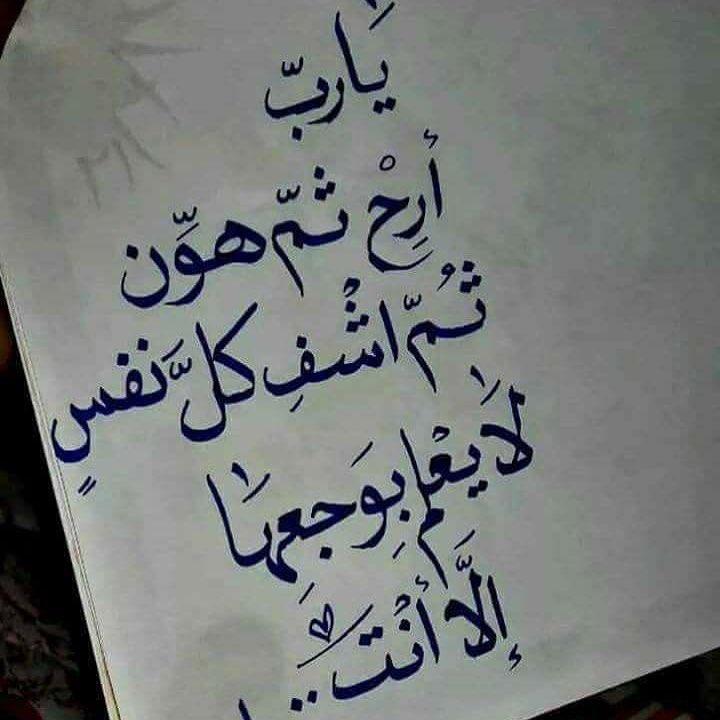 يَا ربّ
أَرِحْ ثمّ هوِّن
ثُمّ اشْفِ كلَّ نَفسٍ
لَا يعْلم بِوَجعِهَا
إلَّا أنْتَ..